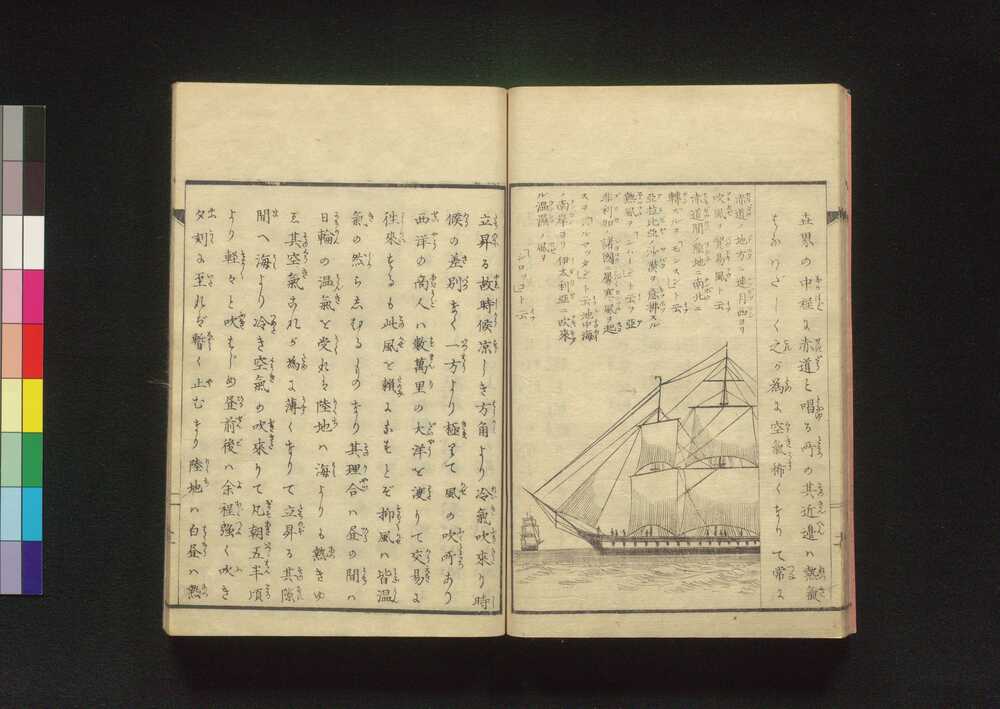 世界の中程に赤道と唱る所の其近邉ハ熱氣
はなハだしく之が為に空氣稀くなりて常に
赤道ノ地方ニ連月西ヨリ
吹風ヲ貿易風ト云
赤道間陸地ニ南北ニ
轉ズルヲモンスーント云
亞拉比亞ノ沙漠ヲ意排スル
熱風ヲシームート云フ亞
非利加諸國ニ暑寒ノ風ヲ起
スヲハルマッタント云地中海
ノ南岸ヨリ伊太利亞ニ吹來
ル温濕ノ風ヲ
シロッコト云
立昇る故時候凉しき方角より冷氣吹來り時
候の差別なく一方より極りて風の吹所あり
西洋の商人ハ數萬里の大洋を渡りて交易に
徃來するも此風を頼になすもとぞ抑風ハ皆温
氣の然らしむるものなり其理合ハ昼の間ハ
日輪の温氣を受れバ陸地ハ海よりも熱きゆ
ゑ其空氣あれが為に薄くなりて立昇る其隙
間へ海より冷き空氣の吹來りて凡朝五半頃
より軽々と吹はじめ昼前後ハ余程強く吹き
夕刻に至れバ暫く止むなり陸地ハ白昼ハ熱